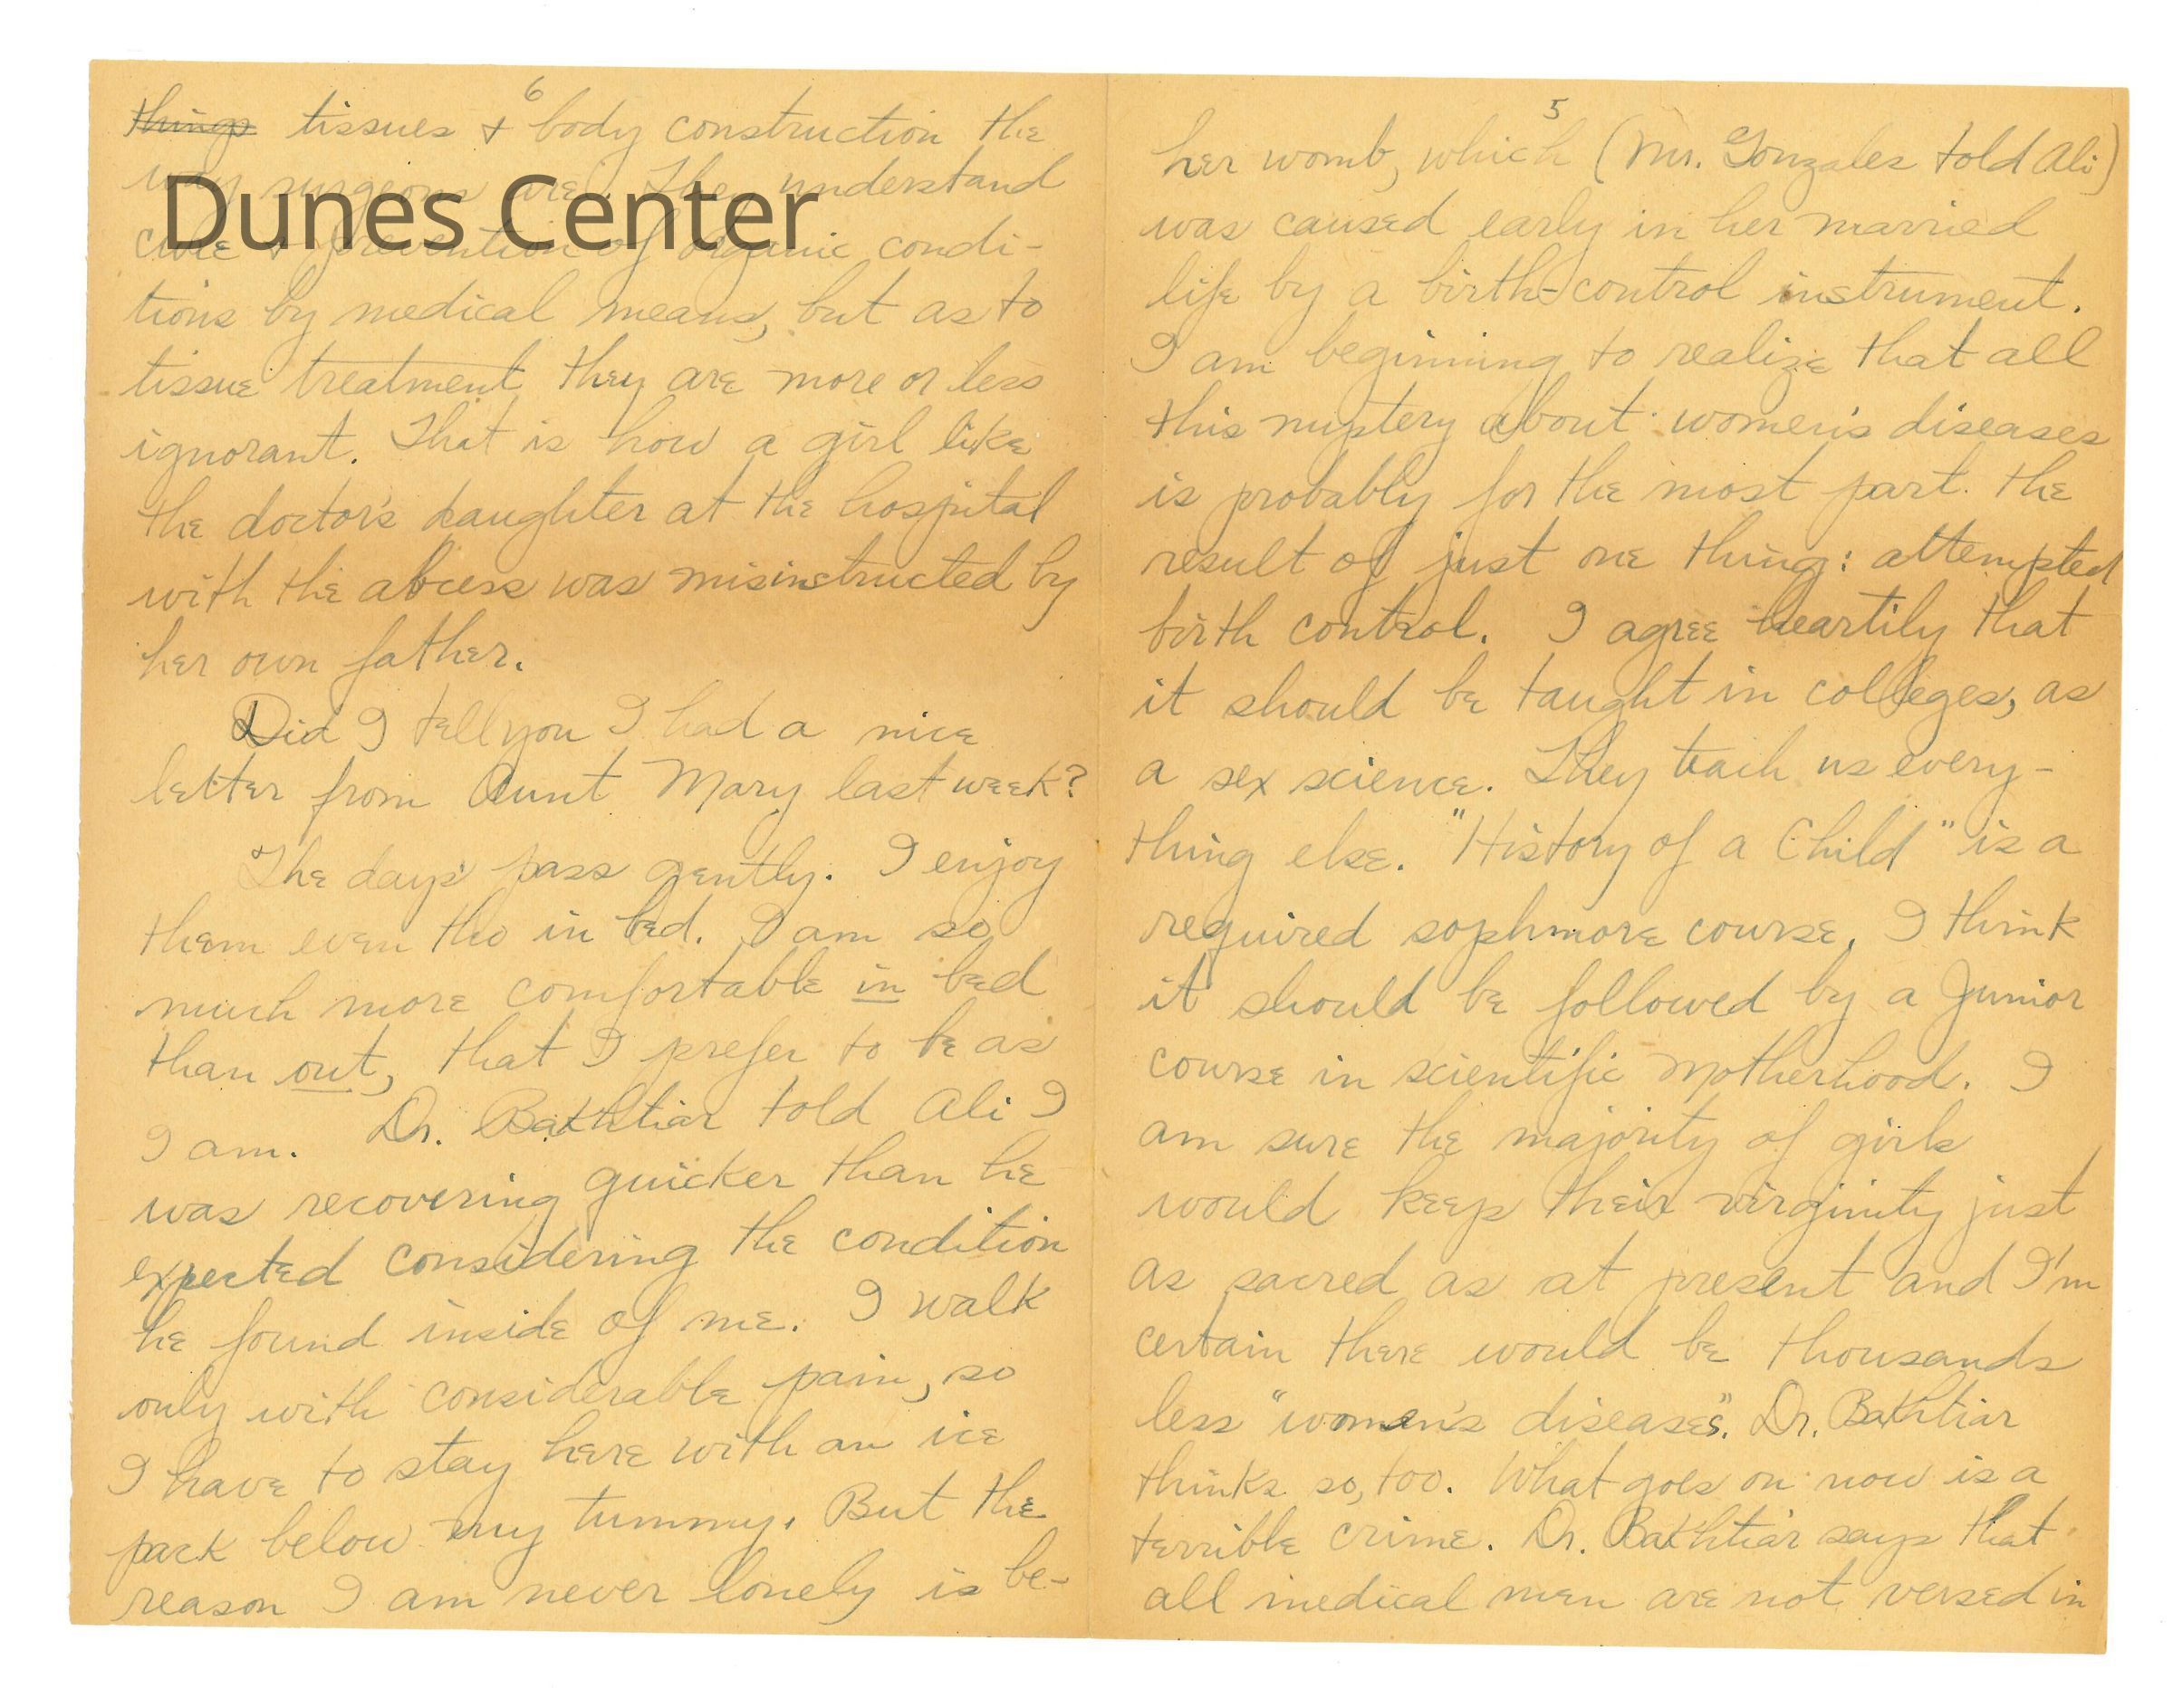 5
her womb, which (Mr. Gonzales told Ali)
was caused early in her married
life by a birth-control instrument.
I am beginning to realize that all
this mystery about women's diseases
is probably for the most part. the
result of just one thing: attempted
birth control. I agree heartily that
it should be taught in colleges, as
a sex science. They teach us every-
thing else. "History of a Child" is a
required sophmore course. I think
it should be followed by a Junior
course in scientific motherhood. I
am sure the majority of girls
would keep their virginity just
as sacred as at present and I'm
certain there would be thousands
less "women's diseases". Dr. Bakhtiar
thinks so, too. What goes on now is a
terrible crime. Dr. Bakhtiar says that
all medical men are not versed in
6
things tissues & body construction the
way surgeons are. They understand
cure & prevention of organic condi-
tions by medical means, but as to
tissue treatment they are more or less
ignorant. That is how a girl like
the doctor's daughter at the hospital
with the abcess was misinstructed by
her own father.
Did I tell you I had a nice
letter from Aunt Mary last week?
The days pass gently. I enjoy
them even tho in bed. I am so
much more comfortable in bed
than out, that I prefer to be as
I am. Dr. Bakhtiar told Ali I
was recovering quicker than he
expected considering the condition
he found inside of me. I walk
only with considerable pain, so
I have to stay here with an ice
pack below my tummy. But the
reason I am never lonely is be-
Dunes Center